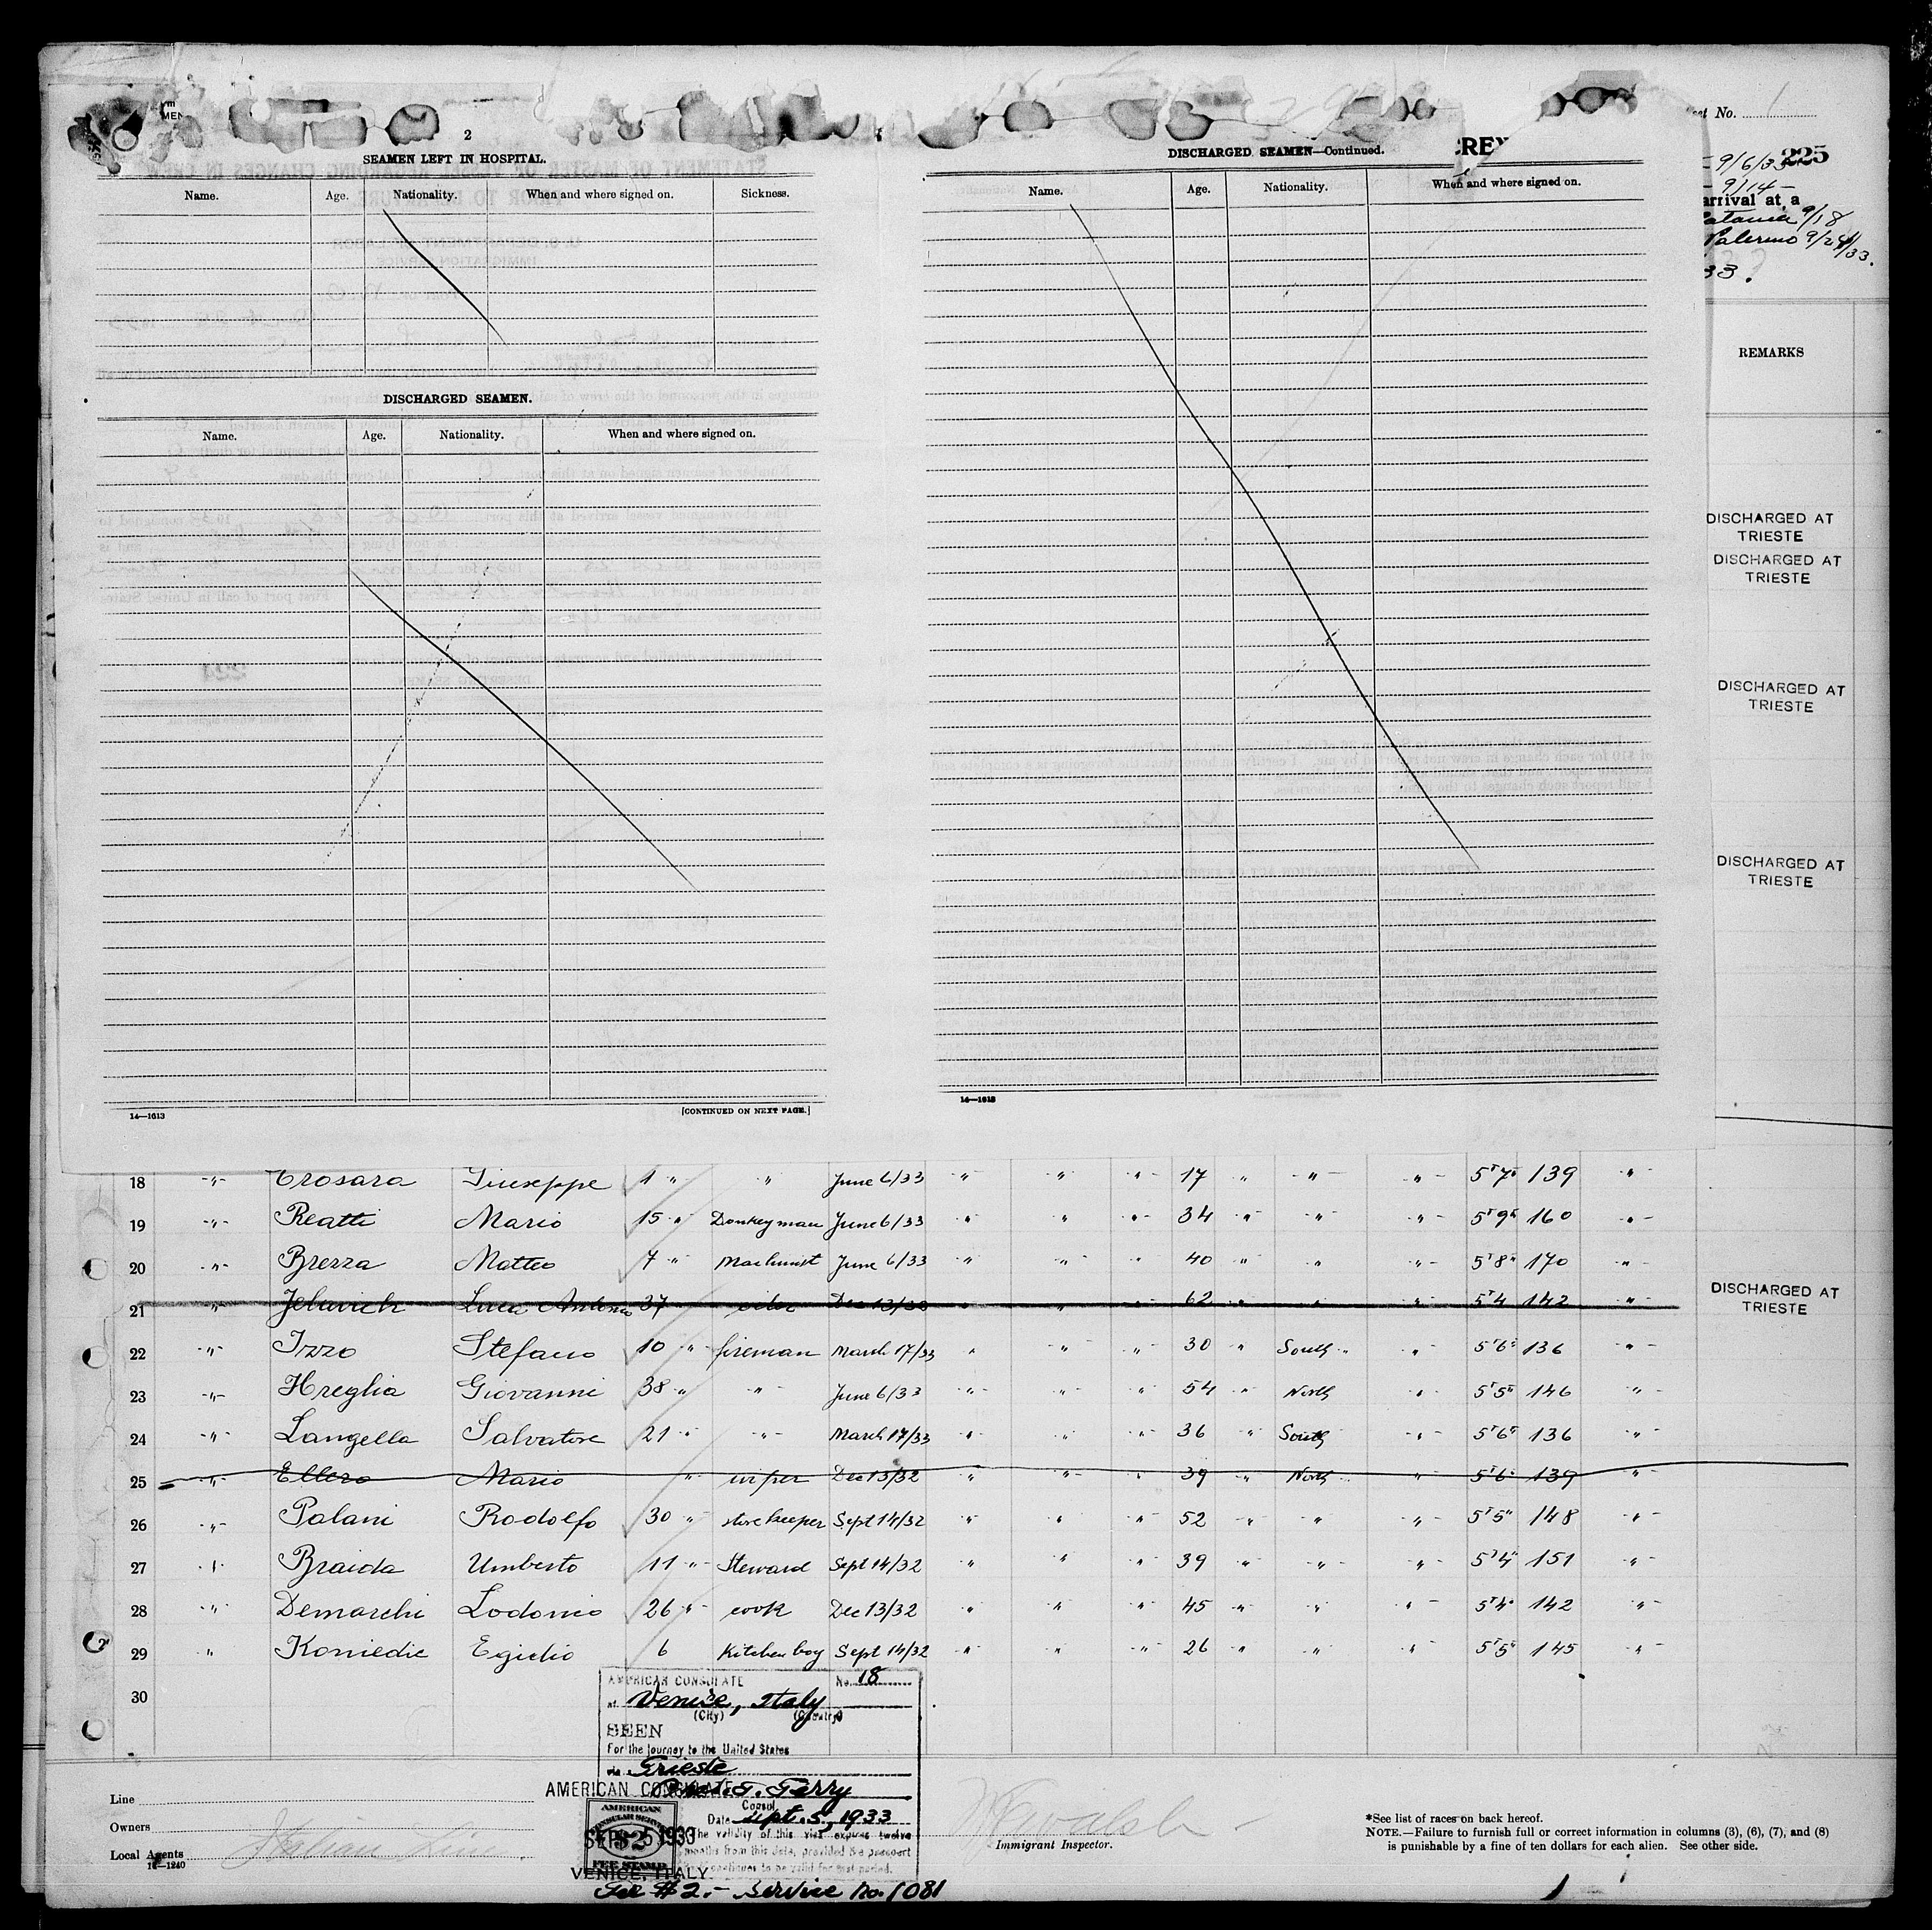 2
SEAMEN LEFT IN HOSPITAL.
Name. Age. Nationality. When and where signed on. Sickness.
DISCHARGED SEAMEN.
Name. Age. Nationality. When and where signed on.
14—1613 [CONTINUED ON NEXT PAGE.]
DISCHARGED SEAMEN—Continued.
Name. Age. Nationality. When and where signed on.
14—1613
No. 1
225
9/6/33
9/14 -
arrival at a
9/18
Palermo 9/24/33.
33.
REMARKS
DISCHARGED AT
TRIESTE
DISCHARGED AT
TRIESTE
DISCHARGED AT
TRIESTE
DISCHARGED AT
TRIESTE
18 -"- Crosara Giuseppe 1 " " June 6/33 " " " 17 " " " 5'7" 139 "
19 -"- Reatti Mario 15 " Donkeyman June 6/33 " " " 34 " " " 5'9" 160 "
20 -"- Brezza Matteo 7 " Machinist June 6/33 " " " 40 " " " 5'8" 170 "
21 " Jelavich Luca Antonio 37 oiler Dec 13/30 " " " 62 " " " 5'4 142 " DISCHARGED AT
TRIESTE
22 -"- Izzo Stefano 10 " fireman March 17/33 " " " 30 " South " " 5'6" 136 "
23 -"- Hreglia Giovanni 38 " " June 6/33 " " " 54 " North " 5'5" 146 "
24 -"- Langella Salvatore 21 " " March 17/33 " " " 36 " South " 5'6" 136 "
25 -"- Ellero Mario " wiper Dec 13/32 " " " 39 " North " 5'6" 139 "
26 -"- Palani Rodolfo 30 " storekeeper Sept 14/32 " " " 52 " " " 5'5" 148 "
27 " Braida Umberto 11 " Steward Sept 14/32 " " " 39 " " " 5'4" 151 "
28 -"- Demarchi Lodovico 26 " cook Dec 13/32 " " " 45 " " " 5'4" 142 "
29 " Koniedic Egidio 6 Kitchen boy Sept 14/32 " " " 26 " " " 5'5" 145 "
30
AMERICAN CONSULATE No. 18
at Venice, Italy
(City) (Country)
SEEN
For the journey to the United States
via Trieste
AMERICAN CONSULATE
Terry
Consul
Date Sept. 5, 1933
The validity of this visa expires twelve
months from this date, provided the passport
continues to be valid for that period.
AMERICAN
CONSULAR SERVICE
$2
FEE STAMP
SEP 5 1933
VENICE, ITALY
Fee $2.- Service No. 1081
Line
Owners
Local Agents Italian Line
14—1240
Immigrant Inspector.
*See list of races on back hereof.
NOTE.—Failure to furnish full or correct information in columns (3), (6), (7), and (8)
is punishable by a fine of ten dollars for each alien. See other side.